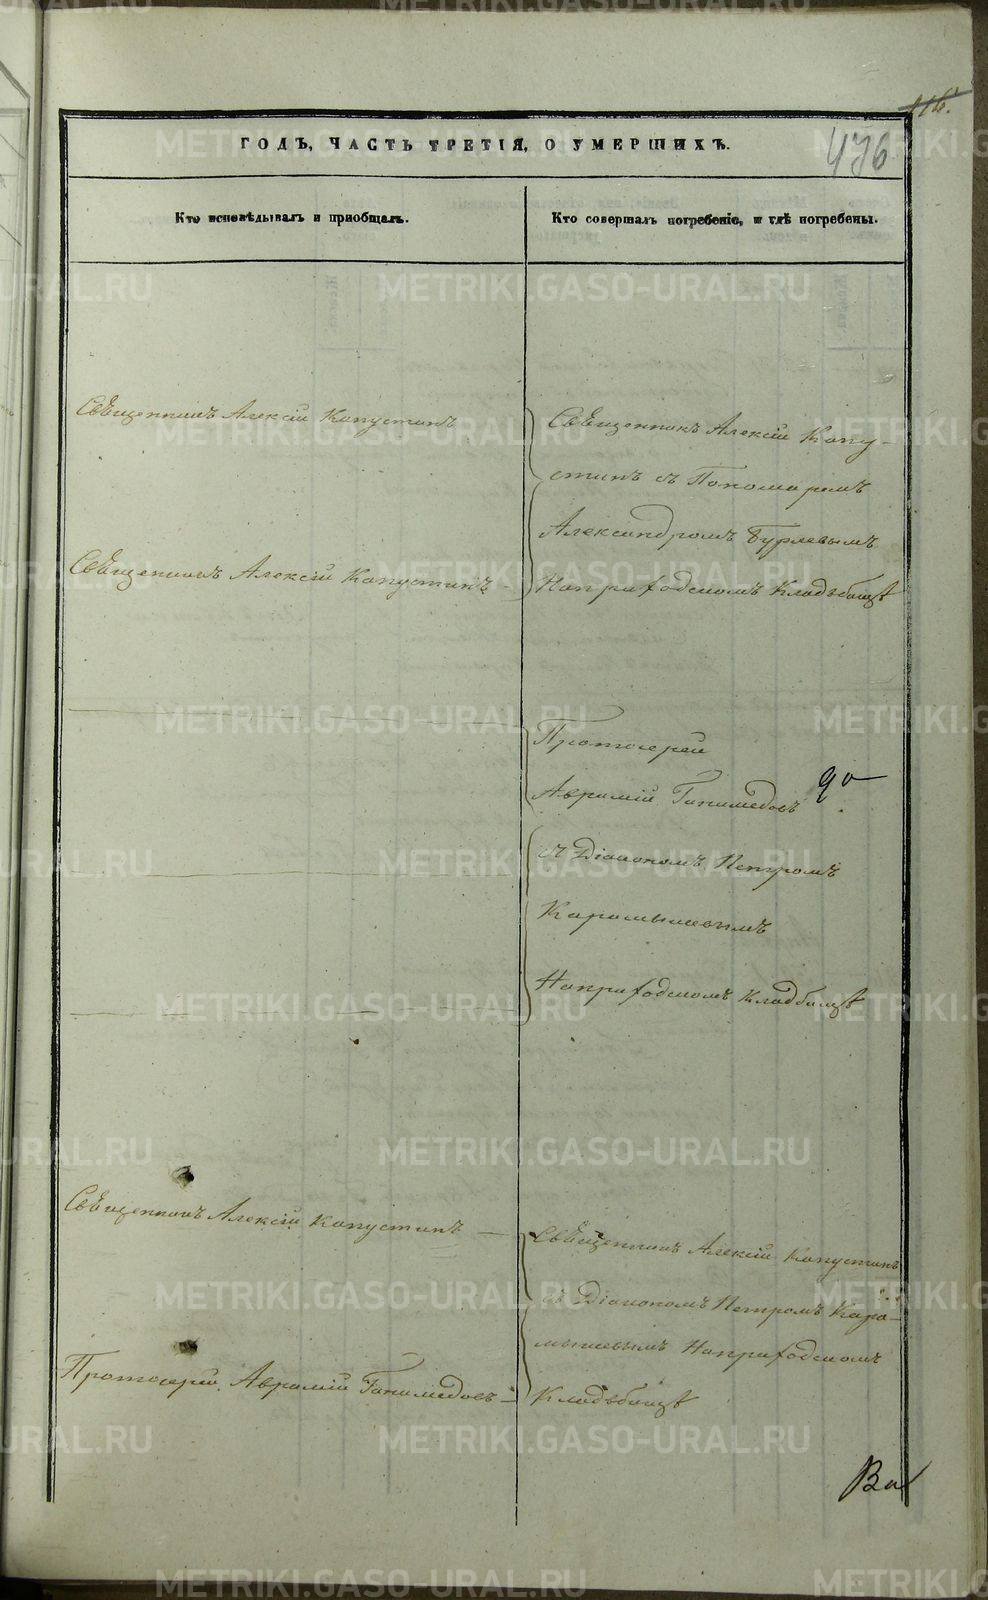 116.
476
ГОДЪ, ЧАСТЬ ТРЕТІЯ, О УМЕРШИХЪ.
Кто исповѣдывалъ и пріобщалъ.
Кто совершалъ погребеніе, и гдѣ погребены.
Священникъ Алексій Капустинъ
Священникъ Алексій Капу-
стинъ съ Пономаремъ
Александромъ Бурлевымъ
Священникъ Алексій Капустинъ
Наприходскомъ Кладъбищѣ
Протоіерей
Аврамій Ганимедовъ
съ Діакономъ Петромъ
Карамышевымъ
Наприходскомъ Кладбищѣ
Священникъ Алексій Капустинъ
Священникъ Алексій Капустинъ
съ Діакономъ Петромъ Кара-
мышевымъ Наприходскомъ
Протоіерей Аврамій Ганимедовъ
Кладъбищѣ
METRIKI.GASO-URAL.RU